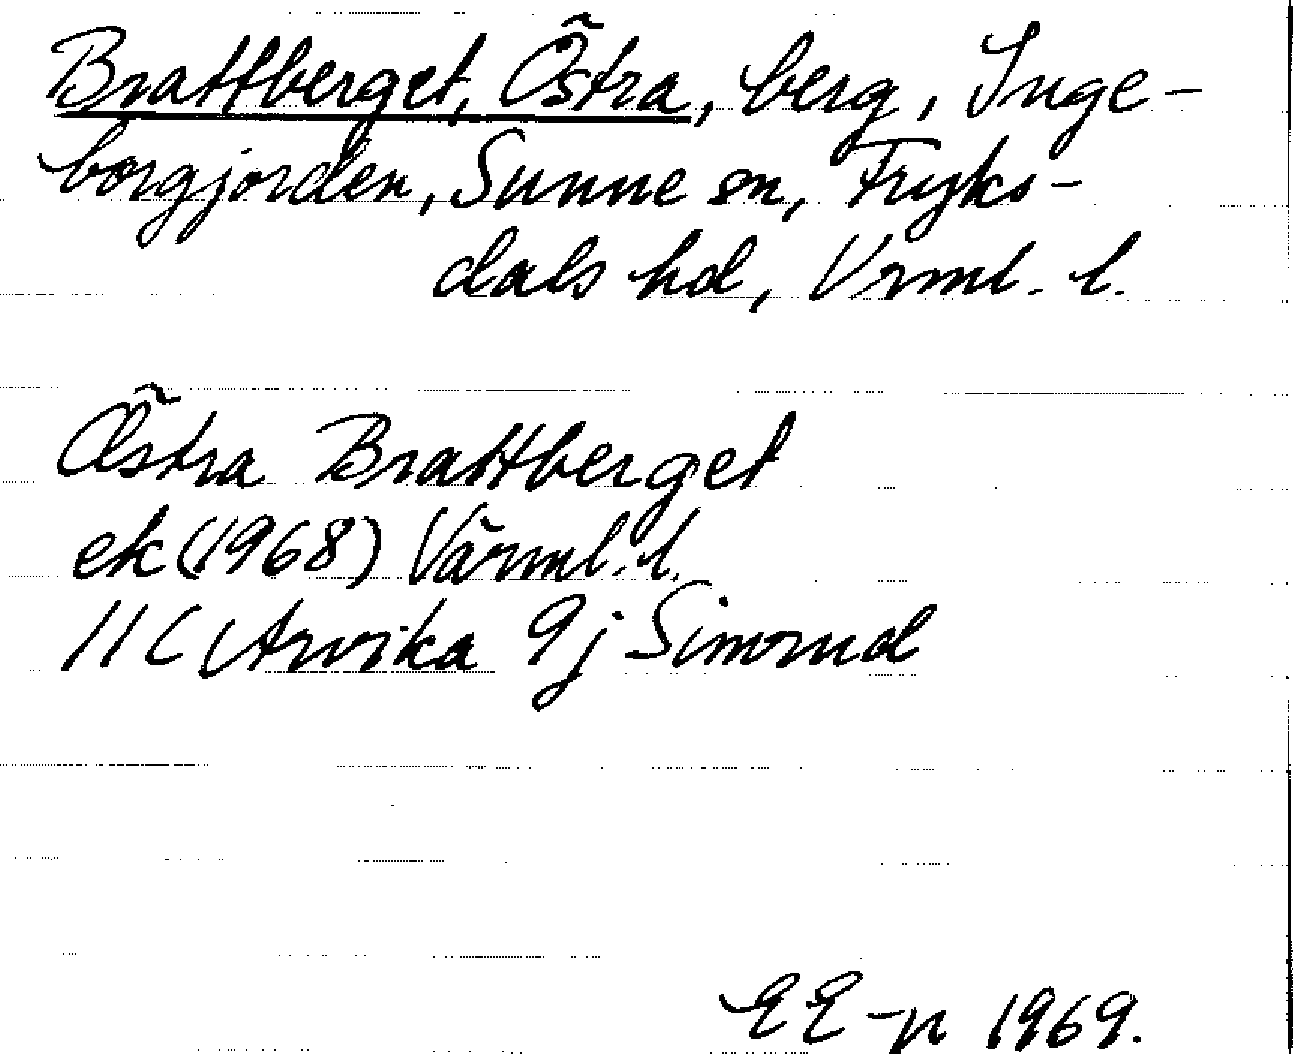 Brattberget, Östra, berg, Inge-
borgjorden, Sunne sn, Fryks-
dals hd, Vrml. l.
Östra Brattberget
ek (1968) Värml. l.
11 C Arvika 9j Simonud
EE-n 1969.